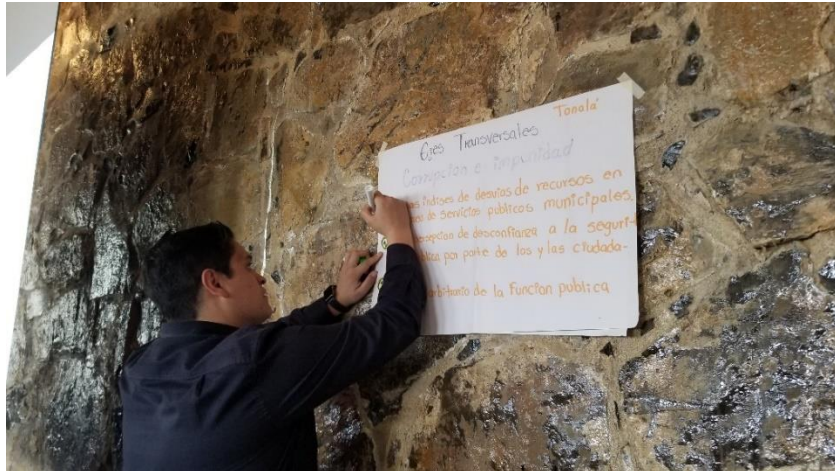 Tonalá
Ejes Transversales
Corrupcion e impunidad
indises de desvias de recursos en
de servicios publicos municipales,
de desconfianza a la seguri-
por parte de los y las ciudada-
arbitrario de la Funcion publica